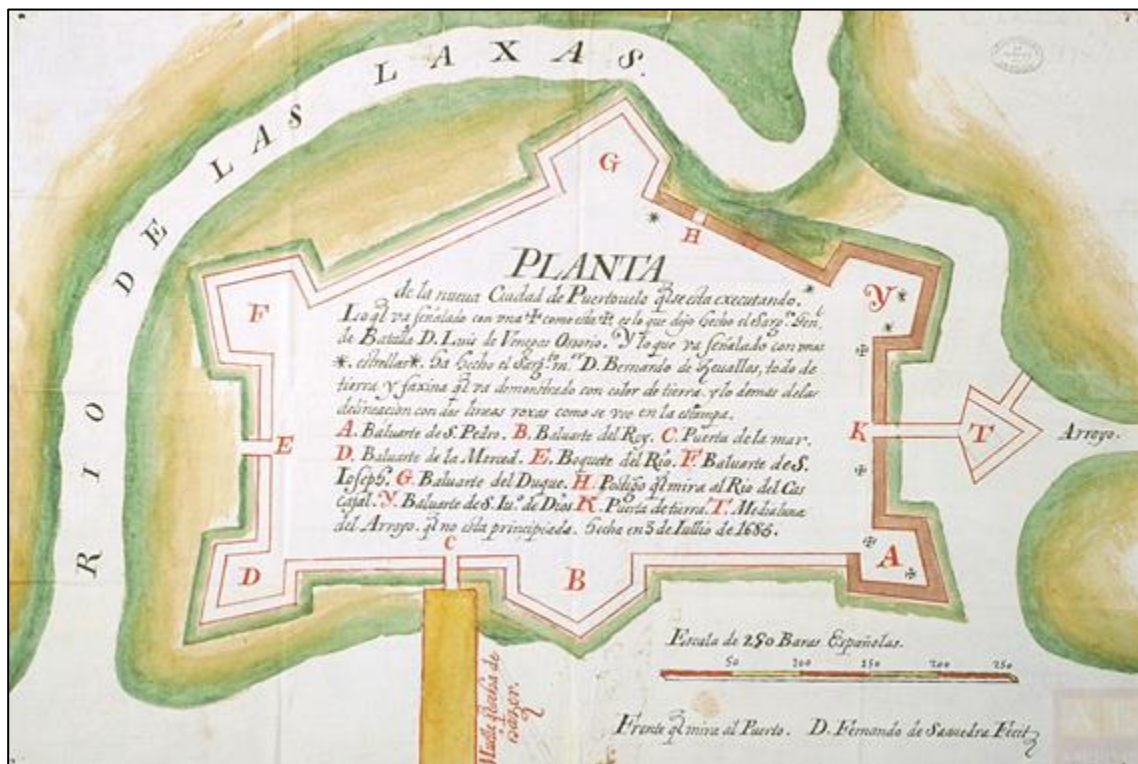 RIO DE LAS LAXAS.
G
H
F
Y
PLANTA
de la nueua Ciudad de Puertouelo q̃ se esta executando.
Lo q̃ va señalado con vna ✠ como esta ✠, es lo que dejo hecho el Sargto. Genl.
de Batalla D. Luis de Venegas Ossorio. Y lo que va señalado con vnas
✴. estrellas ✴. ha hecho el Sargto. mor. D. Bernardo de Zeuallos, todo de
tierra y faxina q̃ va demonstrado con color de tierra, y lo demas delas
delineacion con dos lineas roxas como se vee en la estampa.
A. Baluarte de S. Pedro. B. Baluarte del Rey. C. Puerta de la mar.
D. Baluarte de la Merced. E. Boquete del Río. F. Baluarte de S.
Ioseph. G. Baluarte del Duque. H. Postigo q̃ mira al Rio del Cas
cajal. Y. Baluarte de S. Iuo. de Dios K. Puerta de tierra. T. Medialuna
del Arroyo. q̃ no esta principiada. hecha en 3 de Iullio de 1686.
E
K
T
Arroyo.
C
D
B
A
Muelle q̃ se ha de
hazer.
Escala de 250 Baras Españolas.
50 100 150 200 250
Frente q̃ mira al Puerto. D. Fernando de Saauedra Fecit